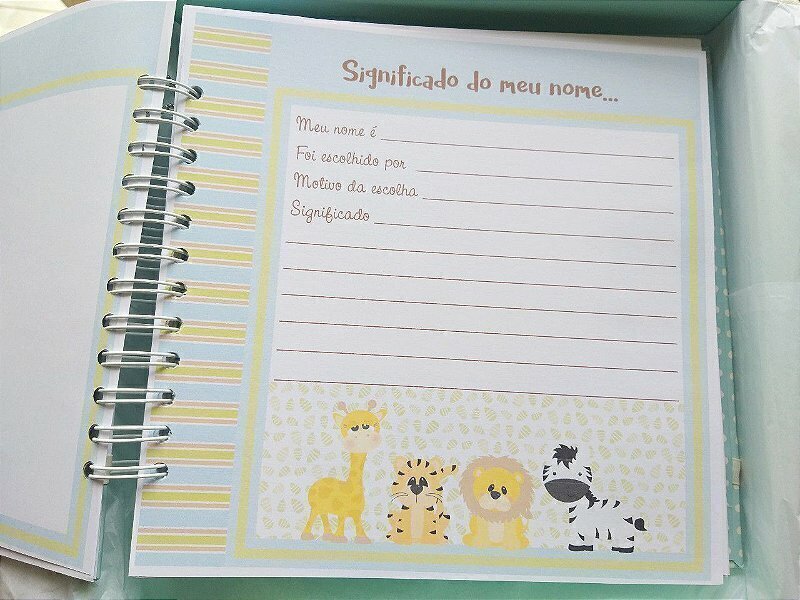 Significado do meu nome...
Meu nome é
Foi escolhido por
Motivo da escolha
Significado